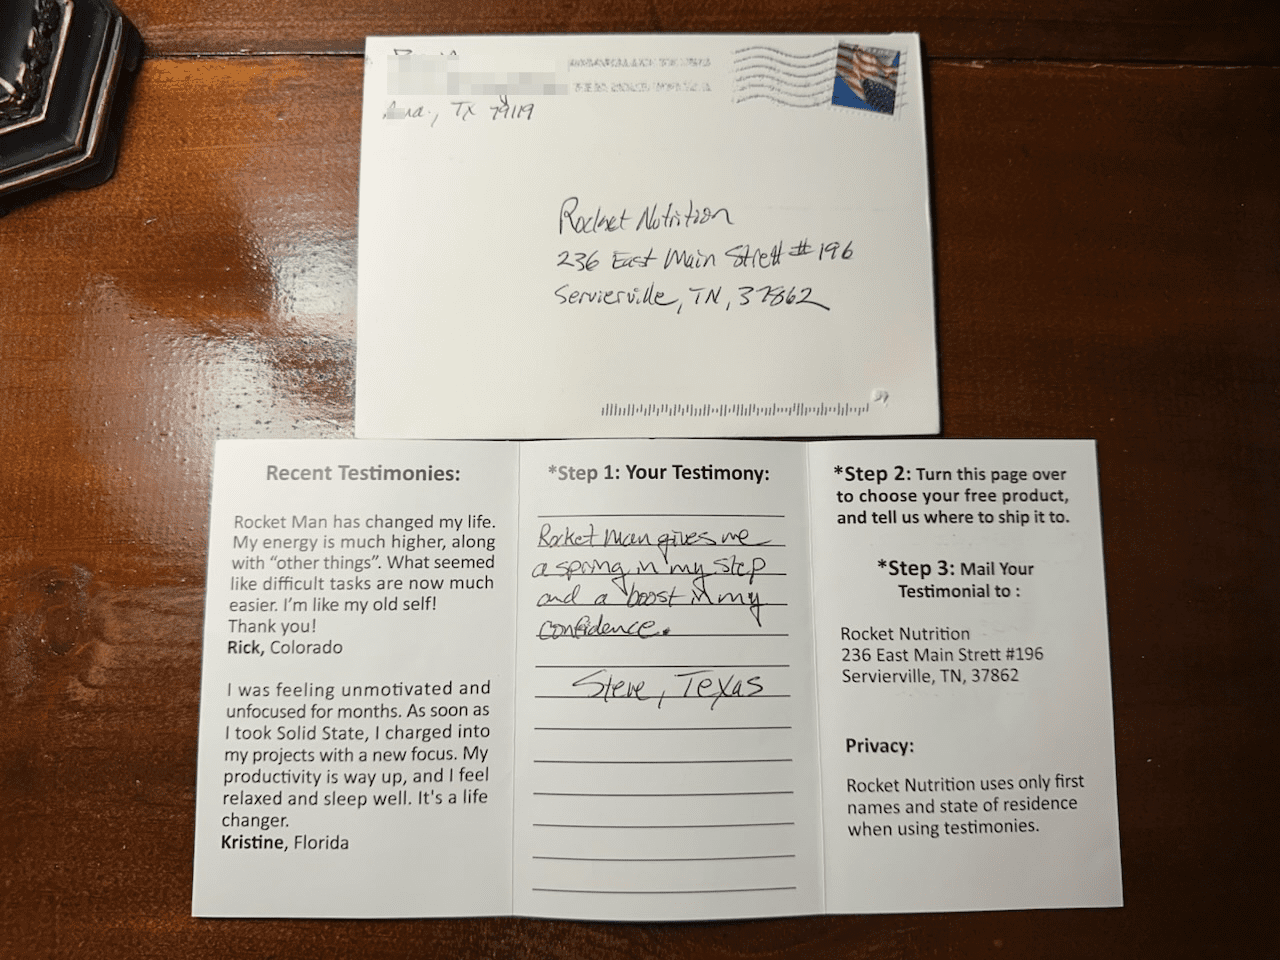 TX 79119
Rocket Nutrition
236 East Main Strett #196
Servierville, TN, 37862
Recent Testimonies:
Rocket Man has changed my life.
My energy is much higher, along
with “other things”. What seemed
like difficult tasks are now much
easier. I’m like my old self!
Thank you!
Rick, Colorado
I was feeling unmotivated and
unfocused for months. As soon as
I took Solid State, I charged into
my projects with a new focus. My
productivity is way up, and I feel
relaxed and sleep well. It's a life
changer.
Kristine, Florida
*Step 1: Your Testimony:
Rocket Man gives me
a spring in my step
and a boost in my
confidence.
Steve, Texas
*Step 2: Turn this page over
to choose your free product,
and tell us where to ship it to.
*Step 3: Mail Your
Testimonial to :
Rocket Nutrition
236 East Main Strett #196
Servierville, TN, 37862
Privacy:
Rocket Nutrition uses only first
names and state of residence
when using testimonies.